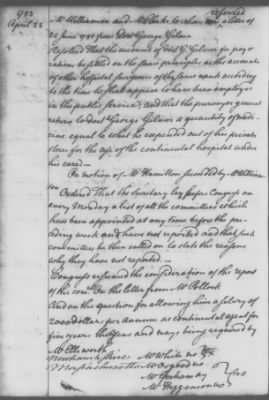 1783
April 25
Mr Williamson and Mr Clarke to whom was referred a letter of
22 June 1781 from Doct George Gilmer
Resolved That the accounts of Doct G. Gilmer for pay &
rations be settled on the same principles as the accounts
of other hospital surgeons of the same rank according
to the time he shall appear to have been employed
in the public service, and that the purveyor general
return to Doct George Gilmer a quantity of medi-
cine equal to what he expended out of his private
store for the use of the continental hospital under
his care
On motion of Mr Hamilton seconded by Mr William-
son Ordered That the Secretary lay before Congress on
every Monday a list of all the committees which
have been appointed at any time before the pre-
ceding week and have not reported and that such
committees be then called on to state the reasons
why they have not reported
Congress resumed the consideration of the report
of the comee. on the letter from Mr Pollock
And on the question for allowing him a salary of
2000 dollars per annum as continental agent for
five years the yeas and nays being required by
Mr Ellsworth
Newhampshire Mr White no
Massachusetts Mr Osgood no
Mr Gorham
Mr Higginson no